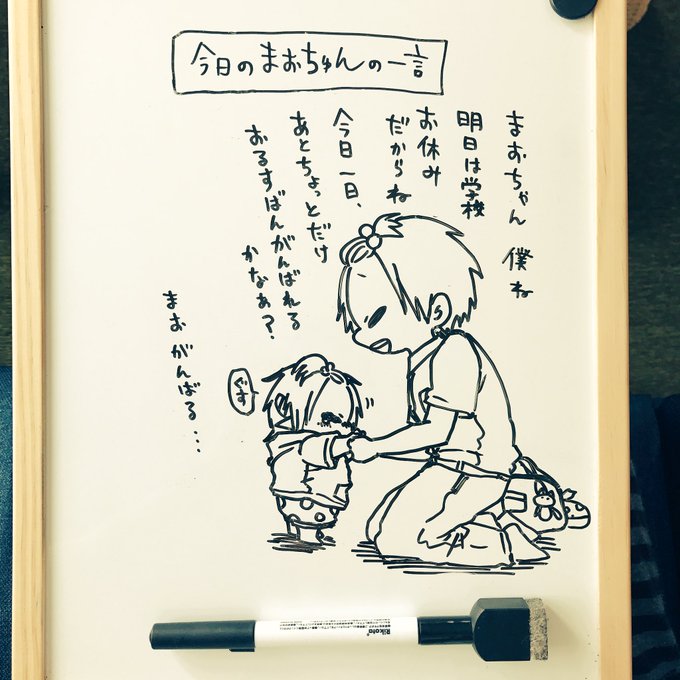 今日のまおちゅんの一言
まおちゃん 僕ね
明日は学校
お休み
だからね
今日一日、
あとちょっとだけ
おるすばんがんばれる
かなぁ?
ぐす
まおがんばる...
Rikota